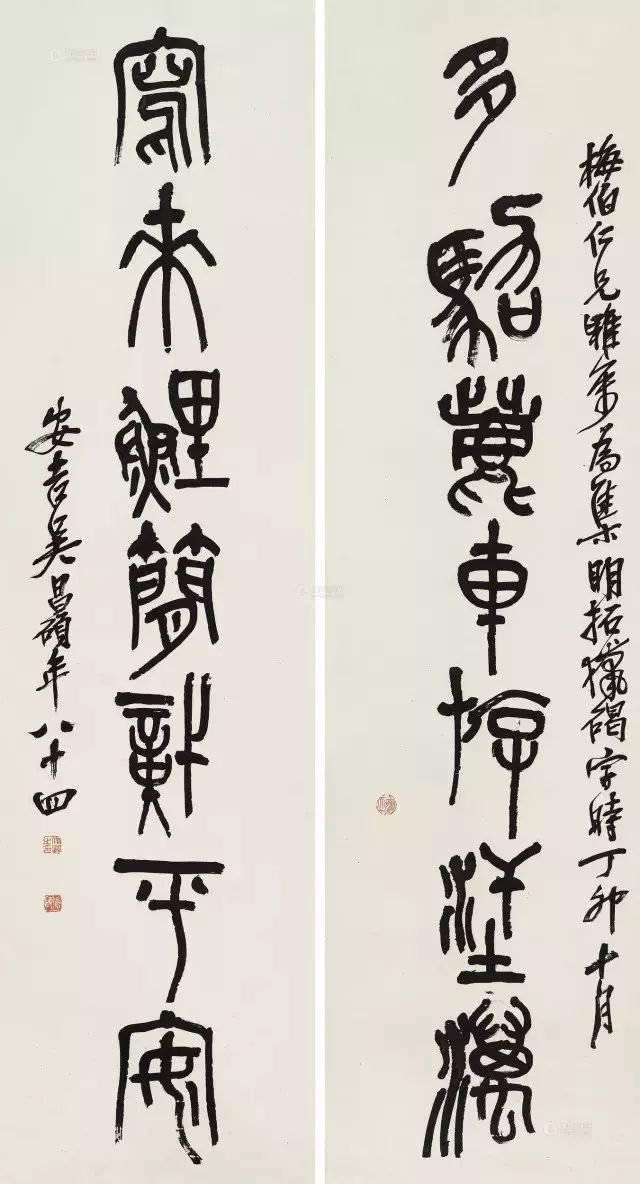 梅伯仁兄雅屬為集明拓獵碣字時丁卯十月
多駕鹿車斿澫
寫來鯉簡平安
安吉吳昌碩年八十四